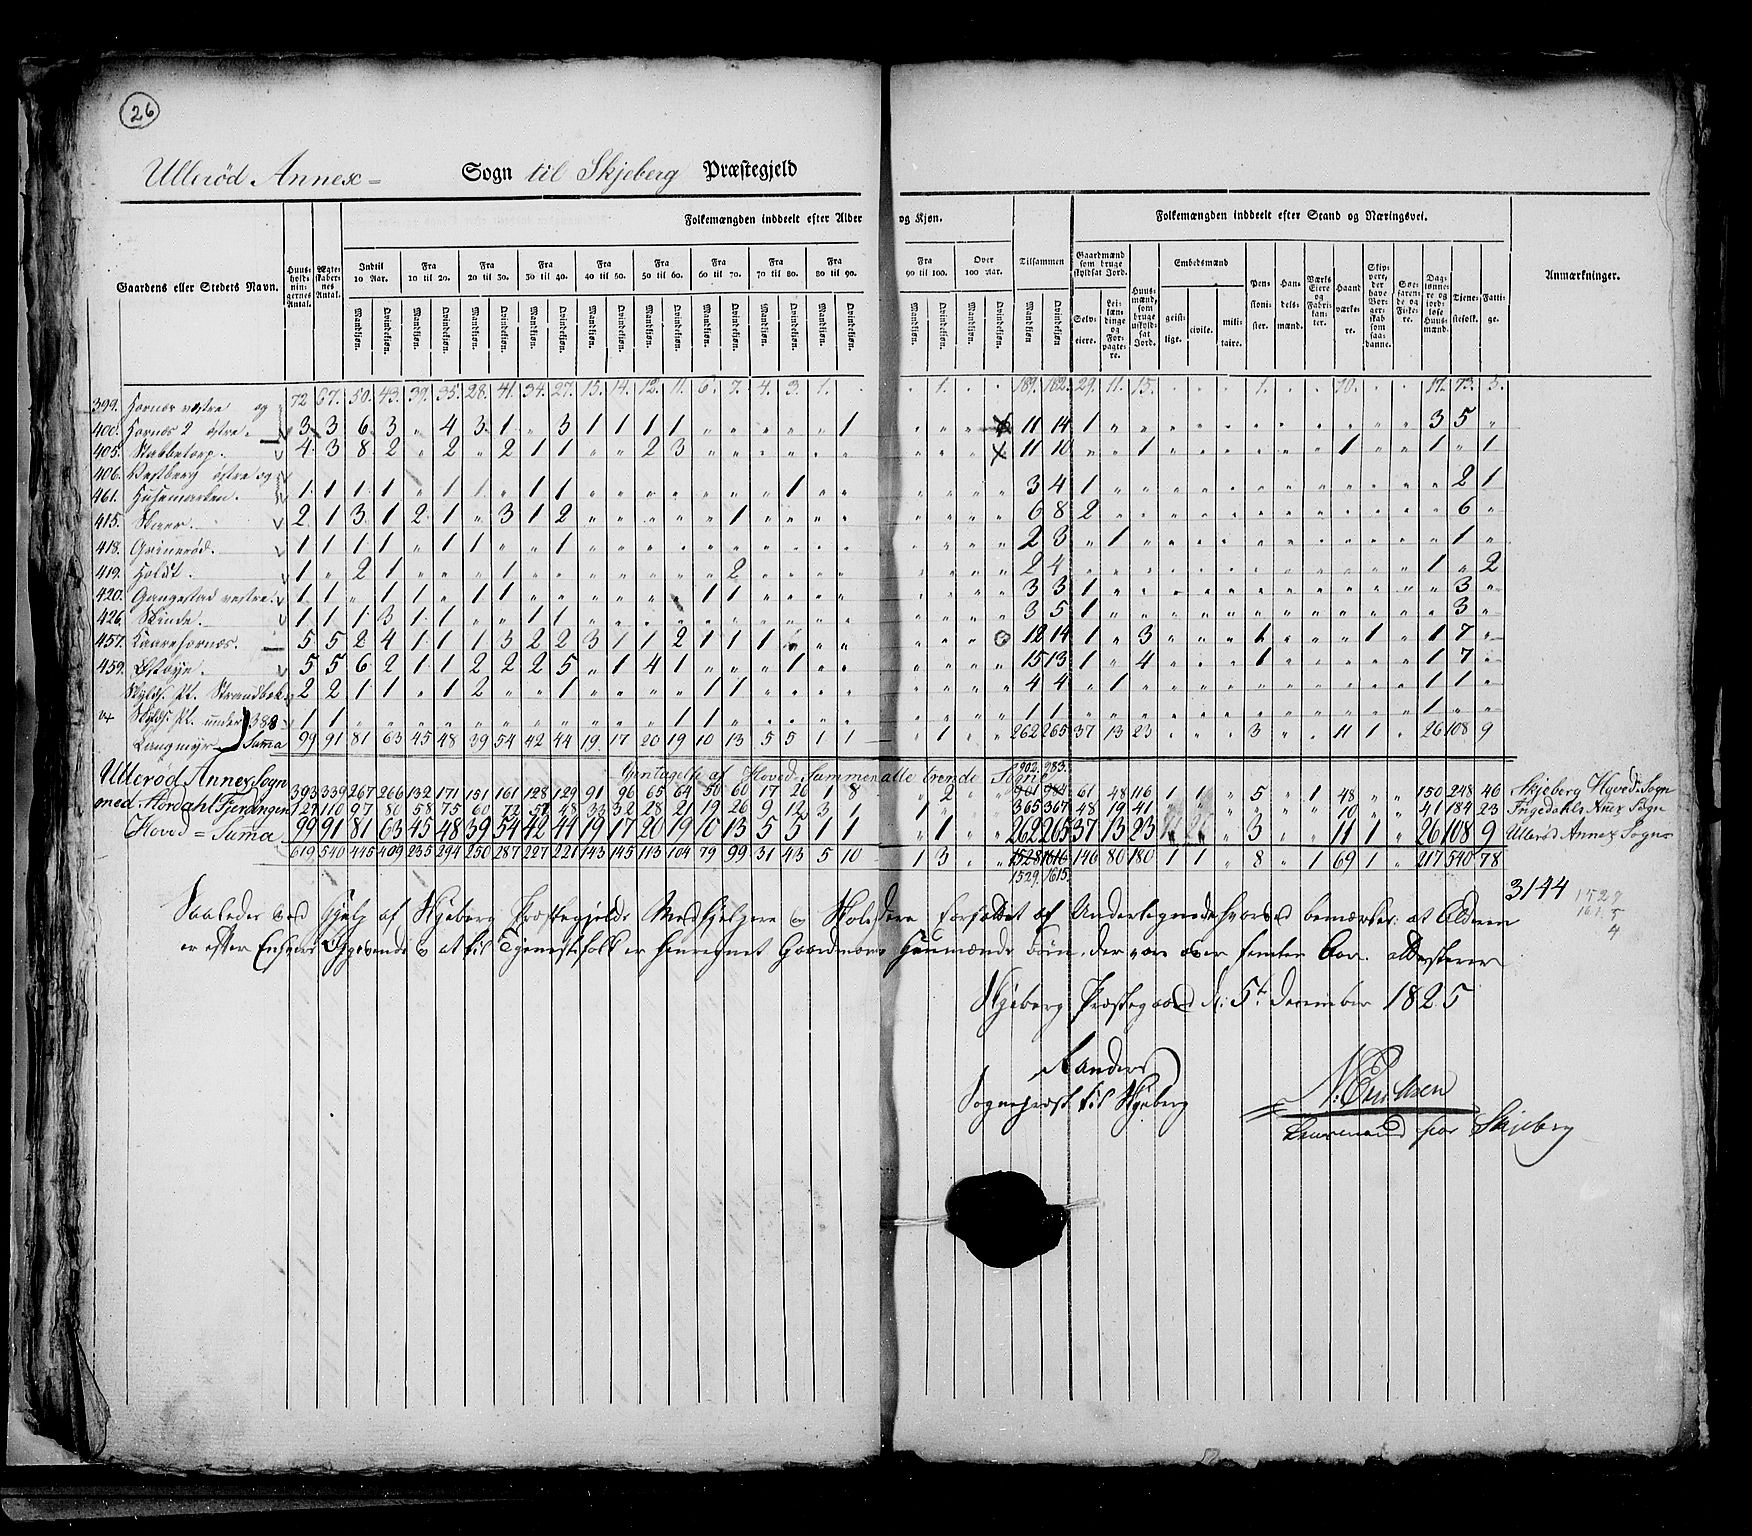 26
Ullerød Annex= Sogn til Skjeberg Præstegjeld
Folkemængden inddeelt efter Alder og Kjøn. Folkemængden inddeelt efter Stand og Næringsvei.
Gaardens eller Stedets Navn. Huusholdningernes Antal. Ægteskabernes Antal. Indtil 10 Aar. Fra 10 til 20. Fra 20 til 30. Fra 30 til 40. Fra 40 til 50. Fra 50 til 60. Fra 60 til 70. Fra 70 til 80. Fra 80 til 90. Fra 90 til 100. Over 100 Aar. Tilsammen Gaardmænd som bruge skyldsat Jord. Huusmænd, som bruge uskyldsat Jord. Embedsmænd Pensionister. Handelsmænd. Værks Eiere og Fabrikanter. Haandværkere. Skippere, der have Borgerskab som saadanne. Søefarende og Fiskere. Daglønnere og jordløse Huusmænd. Tjenestefolk. Fattige. Anmærkninger.
Mandkjøn. Qvindekjøn. Selveiere. Leilændinge og Forpagtere. geistlige. civile. militaire.
72 67. 50. 43. 39. 35. 28. 41. 34. 27. 15. 14. 12. 11. 6. 7. 4. 3. 1. . . 1. . . 189. 162. 29. 11. 15. . . . 1. . . 10. . . 17. 73. 5.
399. Hornes vestre og
400. Hornes 2 østre. 3 3 6 3 „ 4 3 1 „ 3 1 1 1 1 „ „ „ „ „ 1 „ „ „ 11 14 1 „ „ „ „ „ „ „ „ „ „ „ 3 5 „
405. Stabbetorp. 4 3 8 2 „ 2 „ 2 1 1 „ „ 2 3 „ „ „ „ „ „ „ „ „ 11 10 „ „ 1 „ „ „ „ „ „ 1 „ „ 1 „ 1
406. Vestberg østre og
461. Husemarken. 1 1 1 1 „ 1 1 „ 1 1 „ „ „ „ „ „ „ 1 „ „ „ „ „ „ 3 4 1 „ „ „ „ „ „ „ „ „ „ „ „ 2 1
415. Skaer. 2 1 3 1 2 1 „ 3 1 2 „ „ „ „ „ 1 „ „ „ „ „ „ „ „ 6 8 2 „ „ „ „ „ „ „ „ „ „ „ „ 6 „
418. Grinerød. 1 1 1 1 „ 1 1 „ „ 1 „ „ „ „ „ „ „ „ „ „ „ „ „ „ 2 3 „ 1 „ „ „ „ „ „ „ „ „ „ „ 1 „
419. Holdt. 1 „ 2 1 „ „ „ 1 „ „ „ „ „ „ „ 2 „ „ „ „ „ „ „ „ 2 4 „ „ „ „ „ „ „ „ „ „ „ „ 1 „ 2
420. Gangestad vestre. 1 1 „ 1 1 „ 1 1 „ „ „ „ „ „ 1 1 „ „ „ „ „ „ „ „ 3 3 1 „ „ „ „ „ „ „ „ „ „ „ „ 3 „
426. Skinde. 1 1 1 3 1 1 „ „ 1 1 „ „ „ „ „ „ „ „ „ „ „ „ „ „ 3 5 1 „ „ „ „ „ „ „ „ „ „ „ „ 3 „
457. Kaarehornes. 5 5 2 4 1 1 1 3 2 2 3 1 1 2 1 1 1 „ „ „ „ „ „ 12 14 1 „ 3 „ „ „ 1 „ „ „ 1 „ 1 7 „
459. 5 5 6 2 1 1 2 2 2 5 „ 1 4 1 „ „ „ 1 „ „ „ „ „ „ 15 13 1 „ 4 „ „ „ 1 „ „ „ „ „ 1 7 „
Skylds. Pl. Strandbak 2 2 1 1 „ 1 2 „ „ 1 „ „ „ „ 1 1 „ „ „ „ „ „ „ „ 4 4 „ 1 „ „ „ „ „ „ „ „ „ „ 1 1 „
Skylds. Pl. under 388 „ 1 1 „ „ „ „ „ „ „ „ „ „ 1 1 „ „ „ „ „ „ „ „ 1 1 „ „ „ „ „ „ „ „ „ „ „ „ 1 „ „
Langmyr Suma 99 91 81 63 45 48 39 54 42 44 19 17 20 19 10 13 5 5 1 1 „ 1 „ „ 262 265 37 13 23 „ „ „ 3 „ „ 11 1 „ 26 108 9
Gjentagelse af Hoved-Summen alle trende Sogne 902. 983.
Ullerød Annex Sogn 393 339 267 266 132 171 151 161 128 129 91 96 65 64 50 60 17 26 1 8 „ 2 „ „ 901 984 61 48 116 1 1 „ 5 „ 1 48 „ „ 150 248 46 Skjeberg Hoved-Sogn
med Hordahl Fjerdingen 127 110 97 80 58 75 60 72 57 48 33 32 28 21 19 26 9 12 3 1 1 „ „ „ 365 367 48 19 41 „ „ „ „ „ „ 10 „ „ 41 184 23 Ingedahls Anex Sogn
Hoved=Suma 99 91 81 63 45 48 39 54 42 44 19 17 20 19 10 13 5 5 1 1 „ 1 „ „ 262 265 37 13 23 3 „ „ 11 1 „ 26 108 9 Ullerød Annex Sogn
619 540 445 409 235 294 250 287 227 221 143 145 113 104 79 99 31 43 5 10 1 3 „ „ 1528 1616 146 80 180 1 1 „ 8 „ 1 69 1 „ 217 540 78
1529. 1615.
3144 1529
1615
4
Saaledes ved Hjelp af Skjeberg Præstegjelds Medhjelpere og Skolelærere forfattet af Undertegnede hvorved bemærkes: at Alderen
er efter Enhvers Opgivende og at til Tjenestefolk er henregnet Gaardmænds Huusmænds Børn, der var over femten Aar. attesterer
Skjeberg Præstegaard d: 5t December 1825
Sogneprest til Skjeberg
Lensmand for Skjeberg